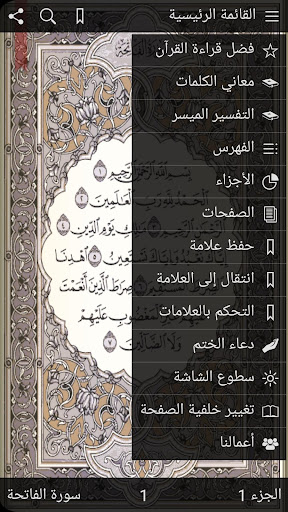 القائمة الرئيسية
فضل قراءة القرآن
معاني الكلمات
التفسير الميسر
الفهرس
الأجزاء
الصفحات
حفظ علامة
انتقال إلى العلامة
التحكم بالعلامات
دعاء الختم
سطوع الشاشة
تغيير خلفية الصفحة
أعمالنا
بِسْمِ ٱللَّهِ ٱلرَّحْمَٰنِ ٱلرَّحِيمِ ١
ٱلْحَمْدُ لِلَّهِ رَبِّ ٱلْعَٰلَمِينَ ٢
مَٰلِكِ يَوْمِ ٱلدِّينِ ٤
وَإِيَّاكَ نَسْتَعِينُ ٥ ٱهْدِنَا
صِرَٰطَ ٱلَّذِينَ أَنْعَمْتَ
ٱلْمَغْضُوبِ عَلَيْهِمْ
وَلَا ٱلضَّآلِّينَ ٧
الجزء 1
1
سورة الفاتحة